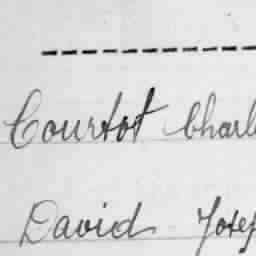 Courtot Charl
David Josep